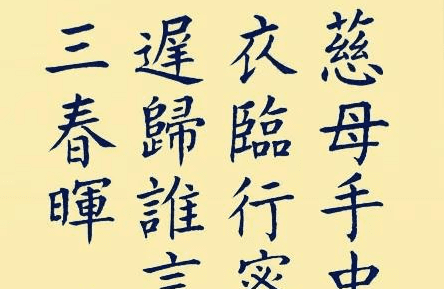 慈母手中
衣臨行密
遲歸誰言
三春暉